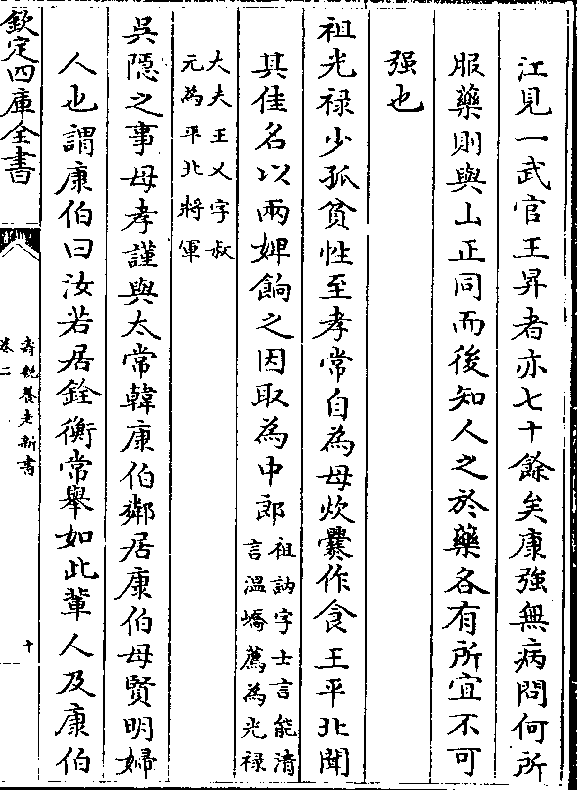 江見一武官王昇者亦七十餘矣康強無病問何所
服藥則與山正同而後知人之於藥各有所宜不可
强也
祖光禄少孤貧性至孝常自為母炊爨作食王平北聞
其佳名以兩婢餉之因取為中郎祖訥字士言能清
言温嶠薦為光禄
大夫王乂字叔
元為平北將軍
吳隱之事母孝謹與太常韓康伯鄰居康伯母賢明婦
人也謂康伯曰汝若居銓衡當舉如此輩人及康伯
欽定四庫全書
壽親養老新書
卷二
十